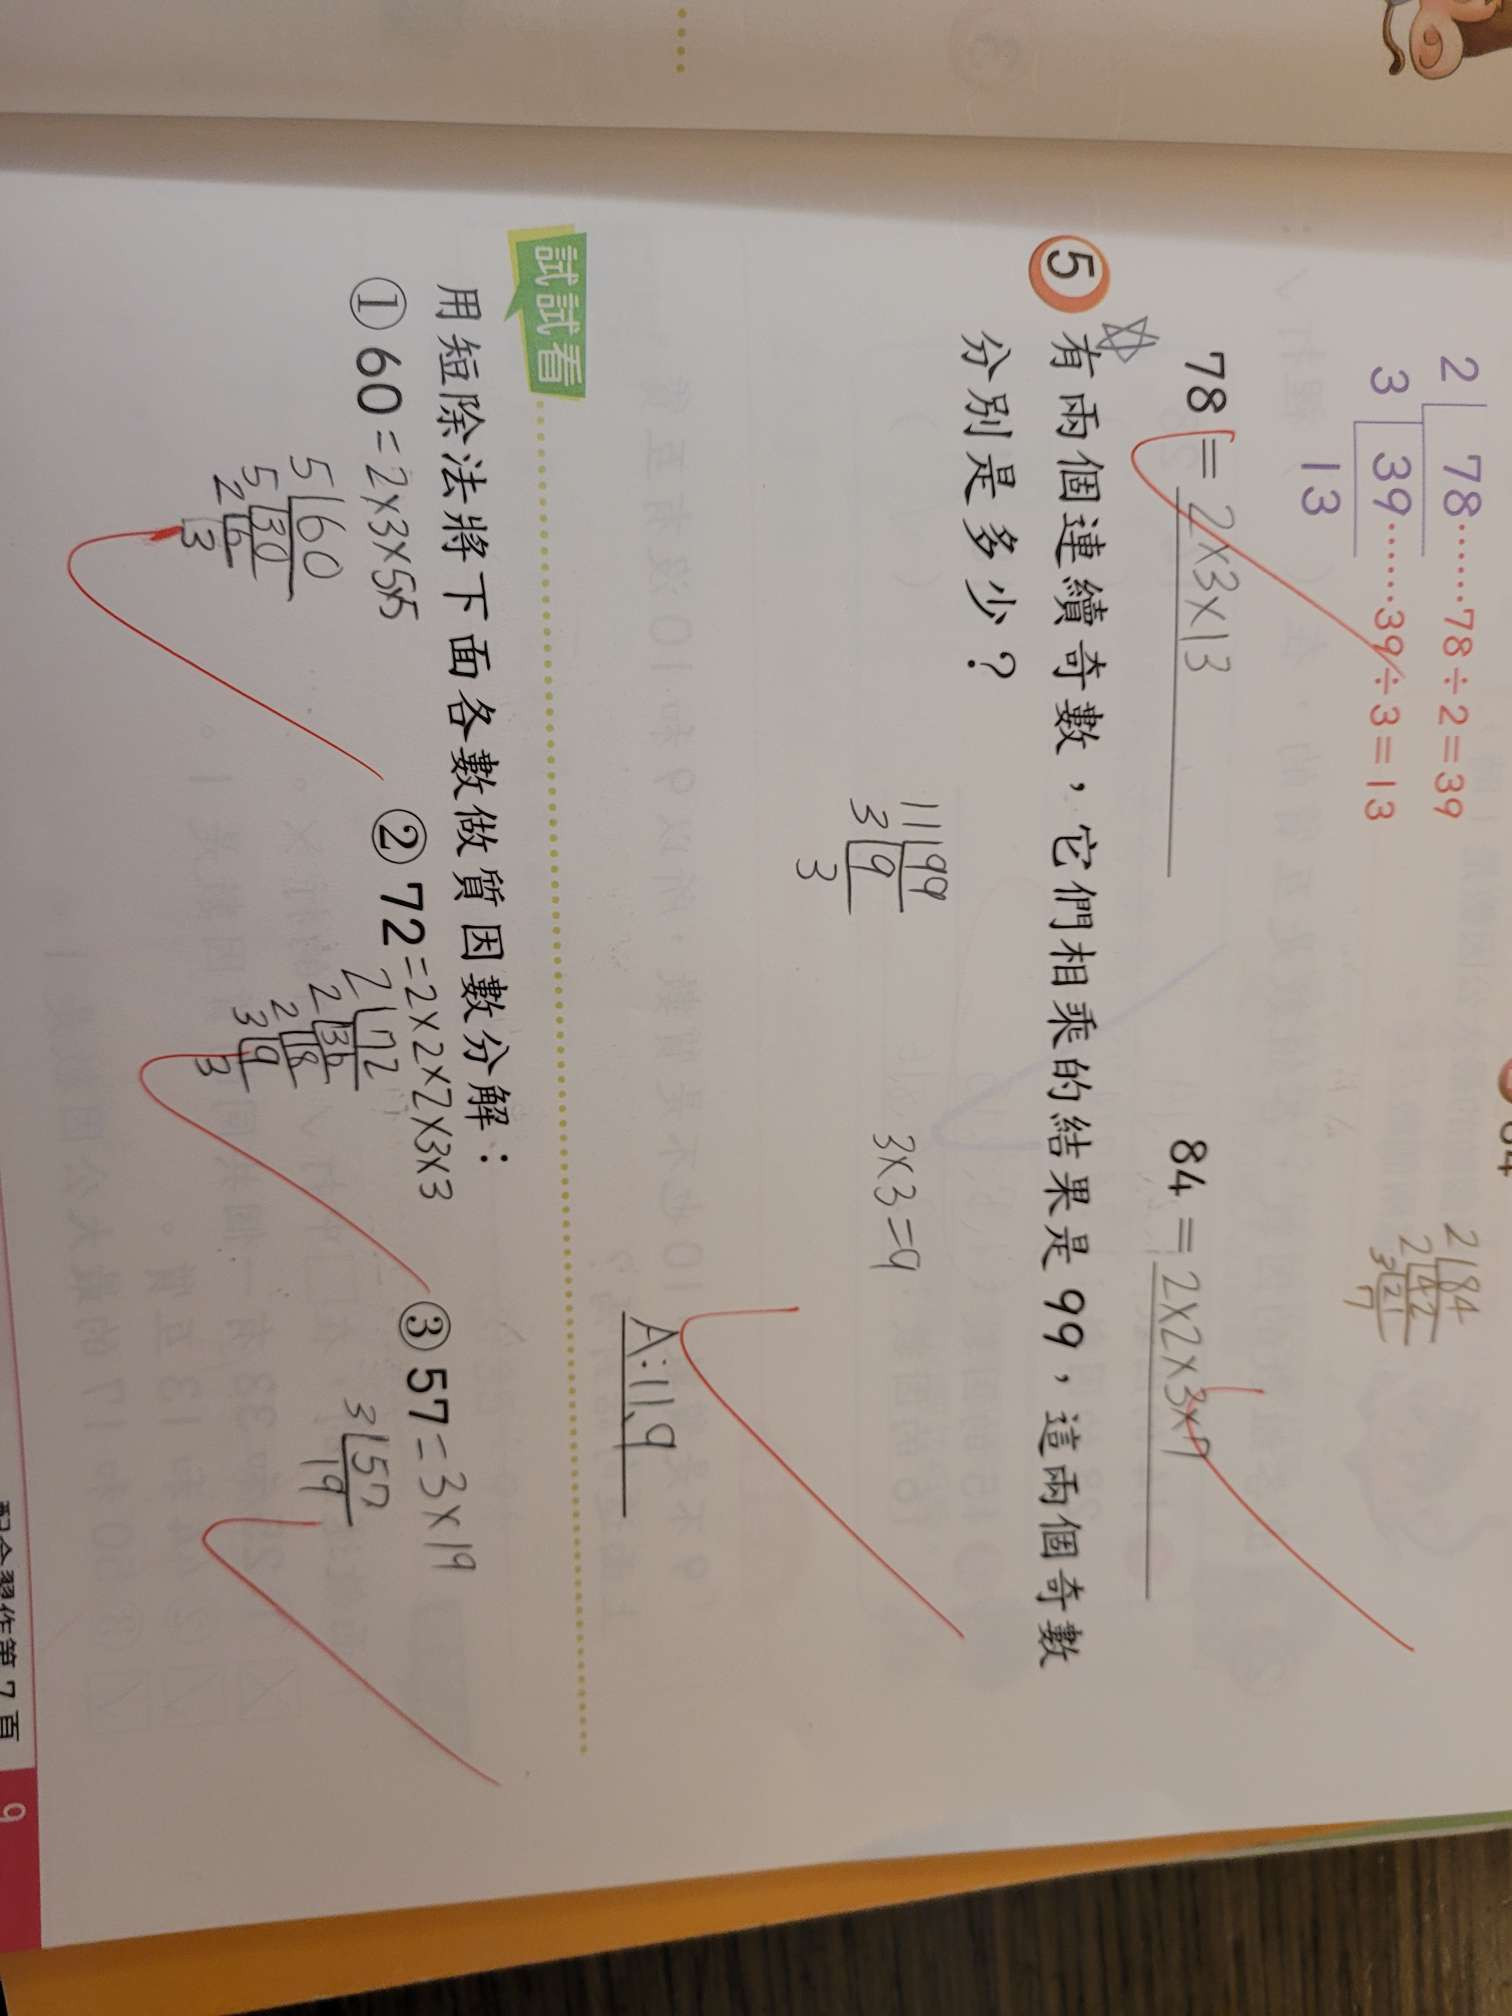 2 78……78÷2=39
3 39……39÷3=13
13
84
2 84
2 42
3 21
7
78=2×3×13
84=2×2×3×7
5 有兩個連續奇數，它們相乘的結果是99，這兩個奇數
分別是多少？
11 99
3 9
3
3×3=9
A:11、9
試試看
用短除法將下面各數做質因數分解：
①60=2×3×5×5 ②72=2×2×2×3×3 ③57=3×19
5 60
5 30
2 6
3
2 72
2 36
2 18
3 9
3
3 57
19
配合習作第7頁
9